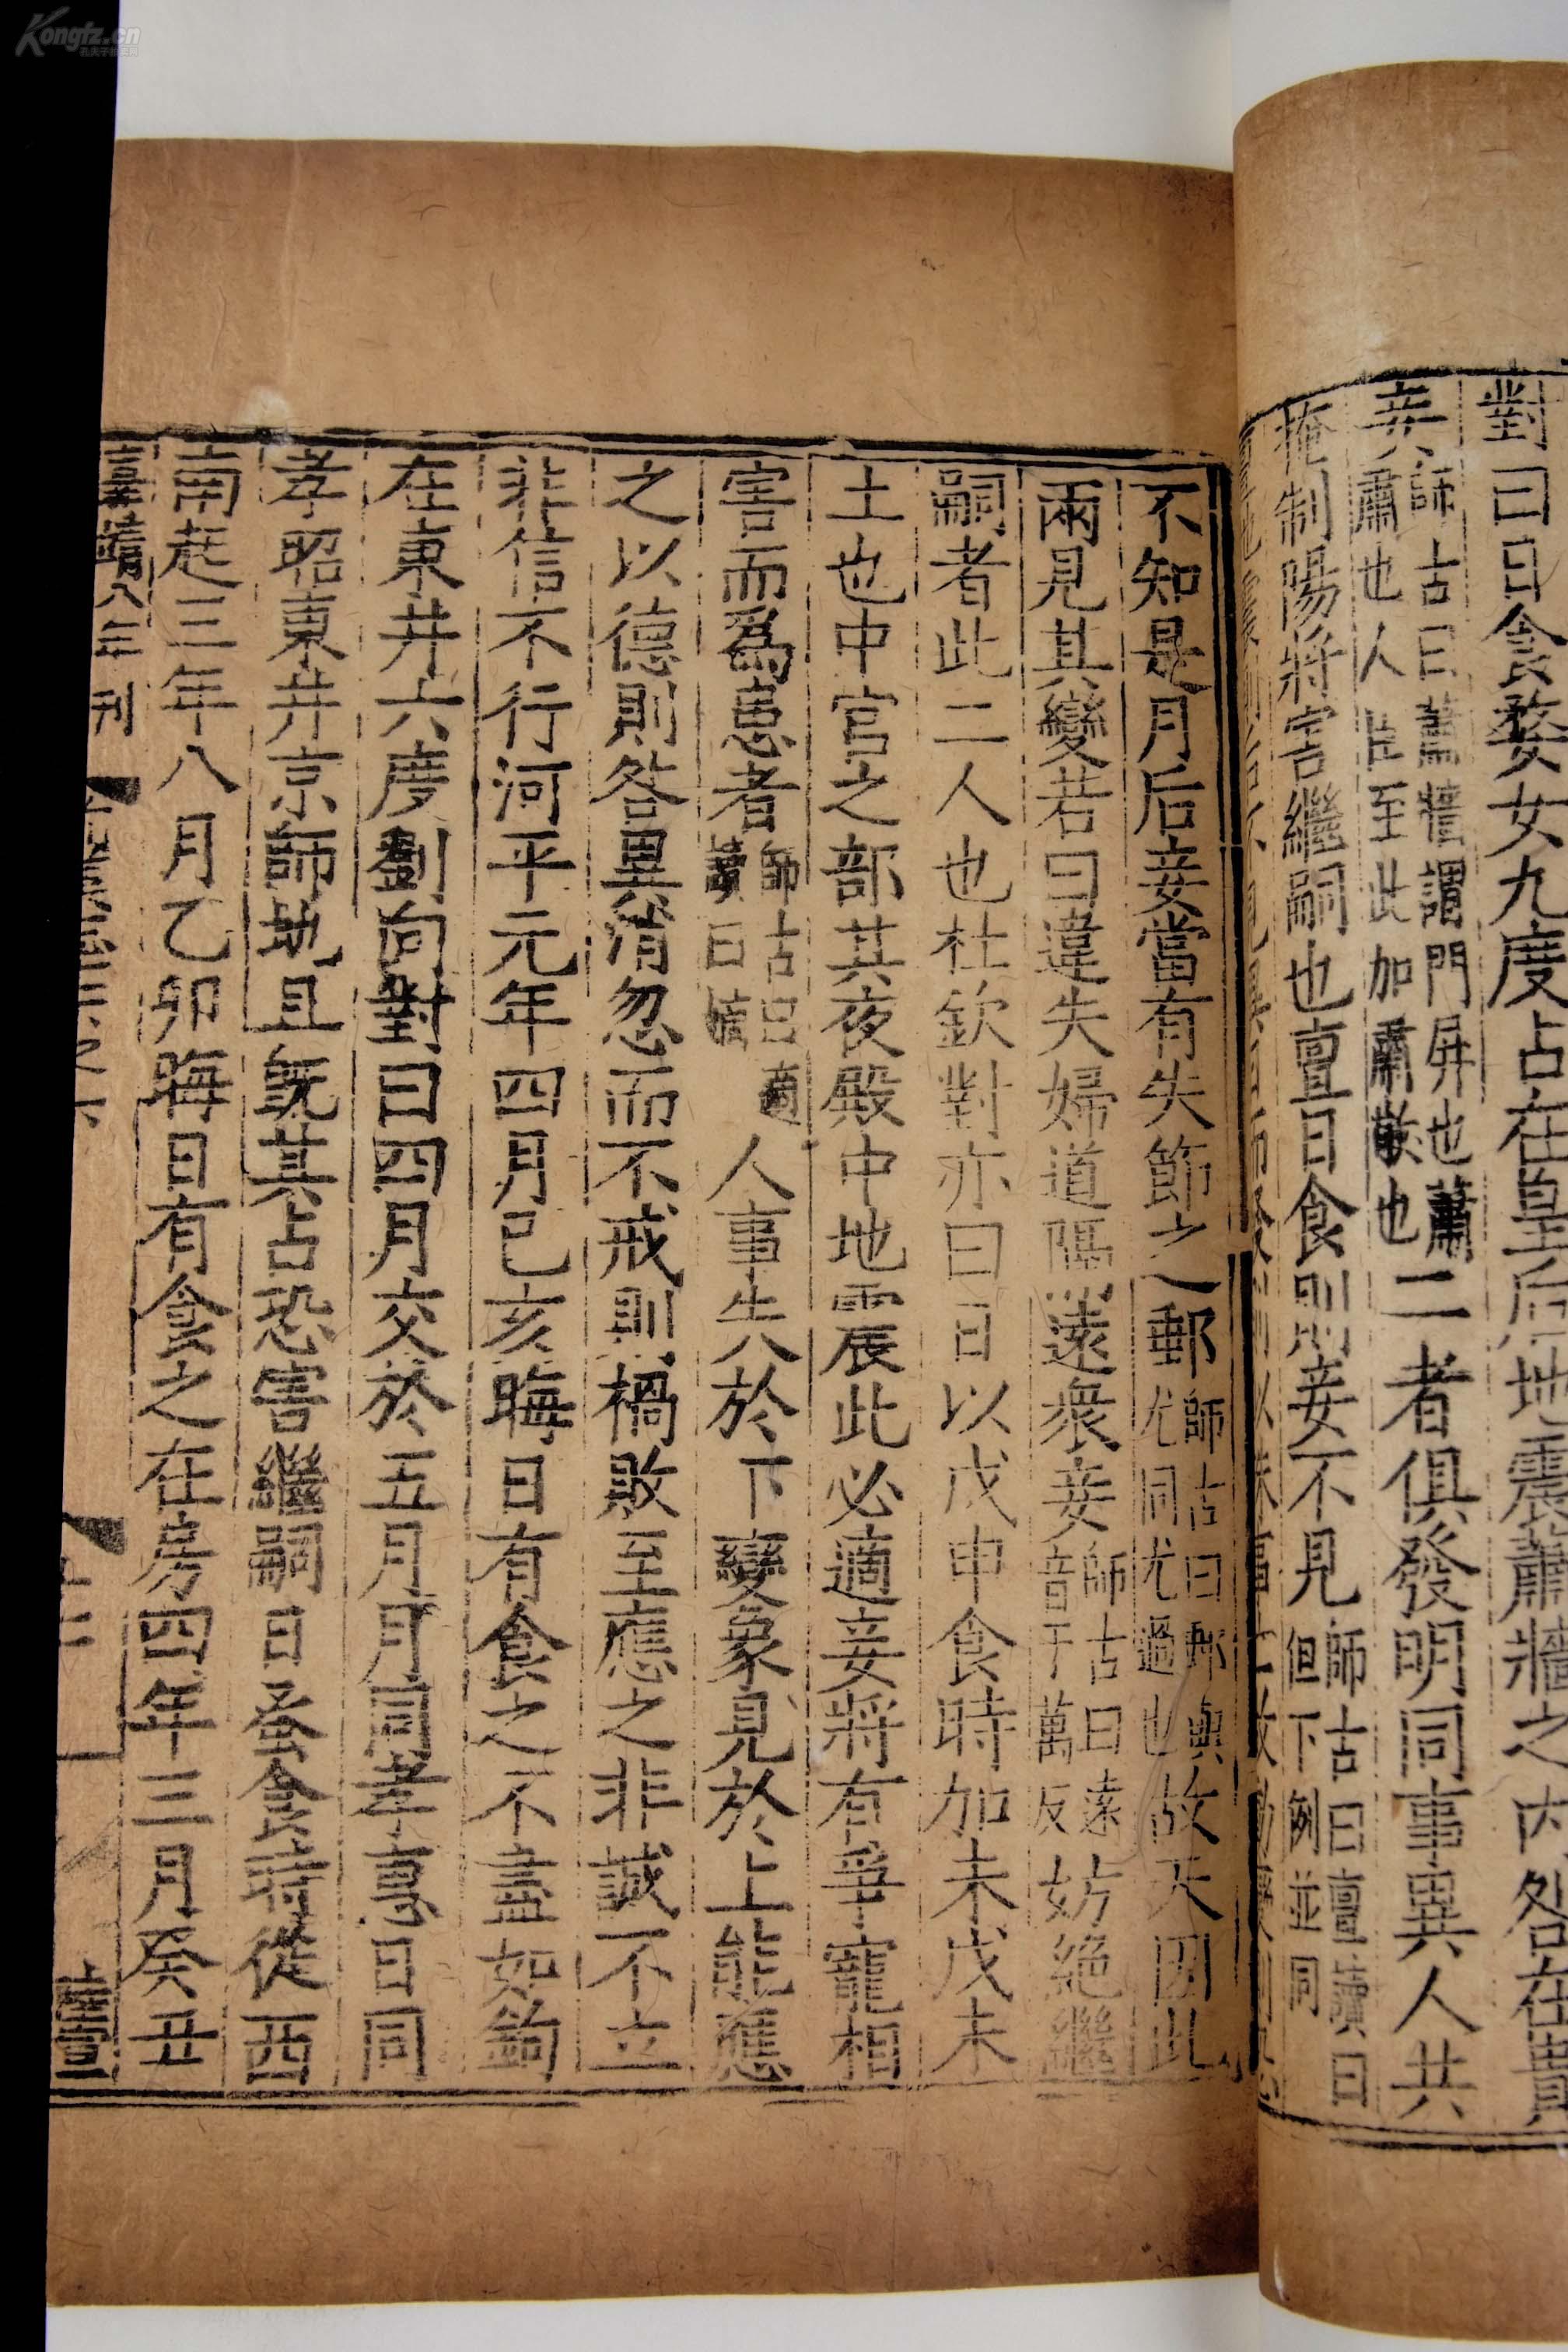 對曰日食婺女九度占在皇后地震蕭牆之内咎在貴
妾師古曰蕭牆謂門屏也蕭肅也人臣至此加肅敬也二者俱發明同事異人共
掩制陽將害繼嗣也亶日食則妾不見師古曰亶讀曰但下例並同
不知是月后妾當有失節之郵師古曰郵與尤同尤過也故天因此
兩見其變若曰違失婦道隔遠衆妾師古曰遠音于萬反妨絶繼
嗣者此二人也杜欽對亦曰日以戊申食時加未戊未
土也中宫之部其夜殿中地震此必適妾將有爭寵相
害而爲患者師古曰適讀曰嫡人事失於下變象見於上能應
之以德則咎異消忽而不戒則禍敗至應之非誠不立
非信不行河平元年四月己亥晦日有食之不盡如鉤
在東井六度劉向對曰四月交於五月月同孝惠日同
孝昭東井京師地且既其占恐害繼嗣日蚤食時從西
南起三年八月乙卯晦日有食之在房四年三月癸丑
嘉靖八年刊
五行志七下之下
Kongfz.cn